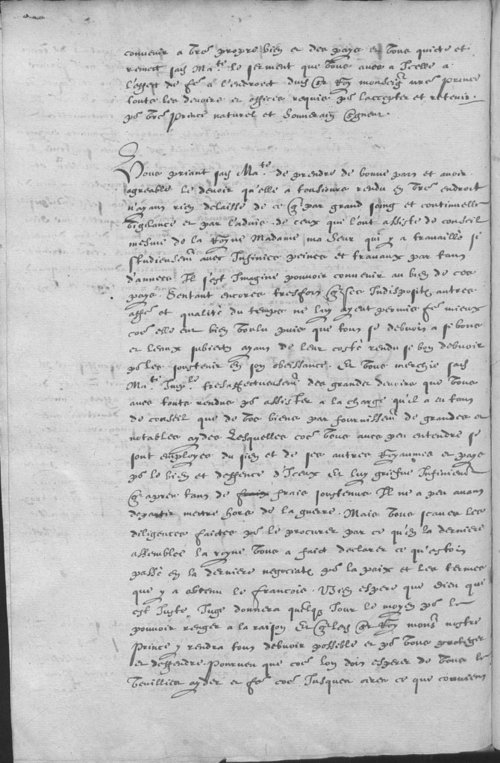 convenir a vre propre bien et des pays et vous quicte et
remect sad Ma.te le serment que vous avez a Icelle a
l'effect de fe a l'endroict dud s.r Roy monseig.r vre prince
touts les devoirs et offices requis po.r l'accepter et retenir
po.r vre prince naturel et souverain seigneur.
Vous priant sad Ma.te de prendre de bonne part et avoir
agreable le devoir qu'elle a tousiours rendu en vre endroit
n'ayant rien delaisse de ce q par grand soing et continuelle
vigilance et par l'advis de ceux qui l'ont assiste de conseil
mesme de la Royne Madame ma seur qui y a travaille si
studieusem.t avec Infinies peines et travaux par tant
d'annees Il s'est Imagine pouvoir convenir au bien de ces
pays Sentant encores tresfort q ses Indisposit.s autres
aff.es et qualite du temps ne luy ayent permis fe mieux
coe elle eut bien voulu puis que tout se debvoit a si bons
et leaux subiects ayant de leur coste rendu si bon debvoir
po.r les soustenir en son obeissance. Et vous mercie sad
Ma.te Imp.le tresaffectueusem.t des grands devoirs que vous
avez tousts rendus po.r assister a la charge qu'il a eu tant
de conseil que de voz biens par fournissem.t de grandes et
notables aydes Lesquelles coe vous avez peu entendre se
sont employes du sien et de ses autres Royaumes et pays
po.r le bien et deffence d'Iceux Et luy griefve Infiniem.t
q apres tant de frais soustenus Il ne a peu avant
departir mectre hors de la guerre. Mais vous scavez les
diligences faictes po.r le procurer par ce qu'en la derniere
assemblee la royne vous a faict declarer ce qu'estoit
passe en la derniere negociat.n po.r la paix et les termes
que y a obtenu le francois. Bien espere que dieu qui
est Juste Juge donnera quelq Jour le moyen po.r le
pouvoir renger a la raison Et q led s.r Roy mons.r nostre
Prince y rendra tout debvoir possible et po.r vous proteger
et deffendre pourveu que coe lon doit esperer de vous le
veuillez ayder et fe coe Jusques ores ce que convient